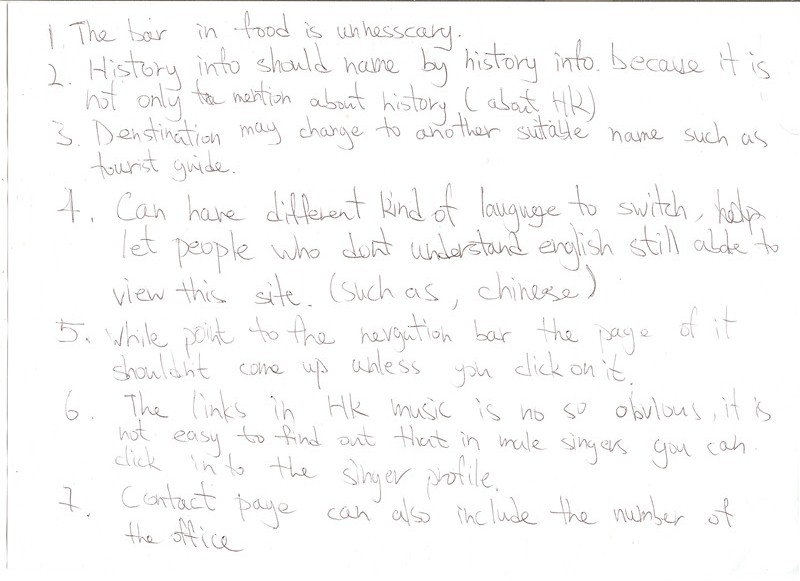 1. The bar in food is unhesscary.
2. History info should name by history info. because it is
not only to mention about history (about HK)
3. Denstination may change to another suitable name such as
tourist guide.
4. Can have different kind of lauguge to switch, help
let people who dont understand english still able to
view this site. (such as, chinese)
5. While point to the nevgation bar the page of it
shouldn't come up unless you click on it.
6. The links in HK music is no so obvlous, it is
not easy to find out that in male singers you can
click in to the singer profile.
7. Contact page can also include the number of
the office